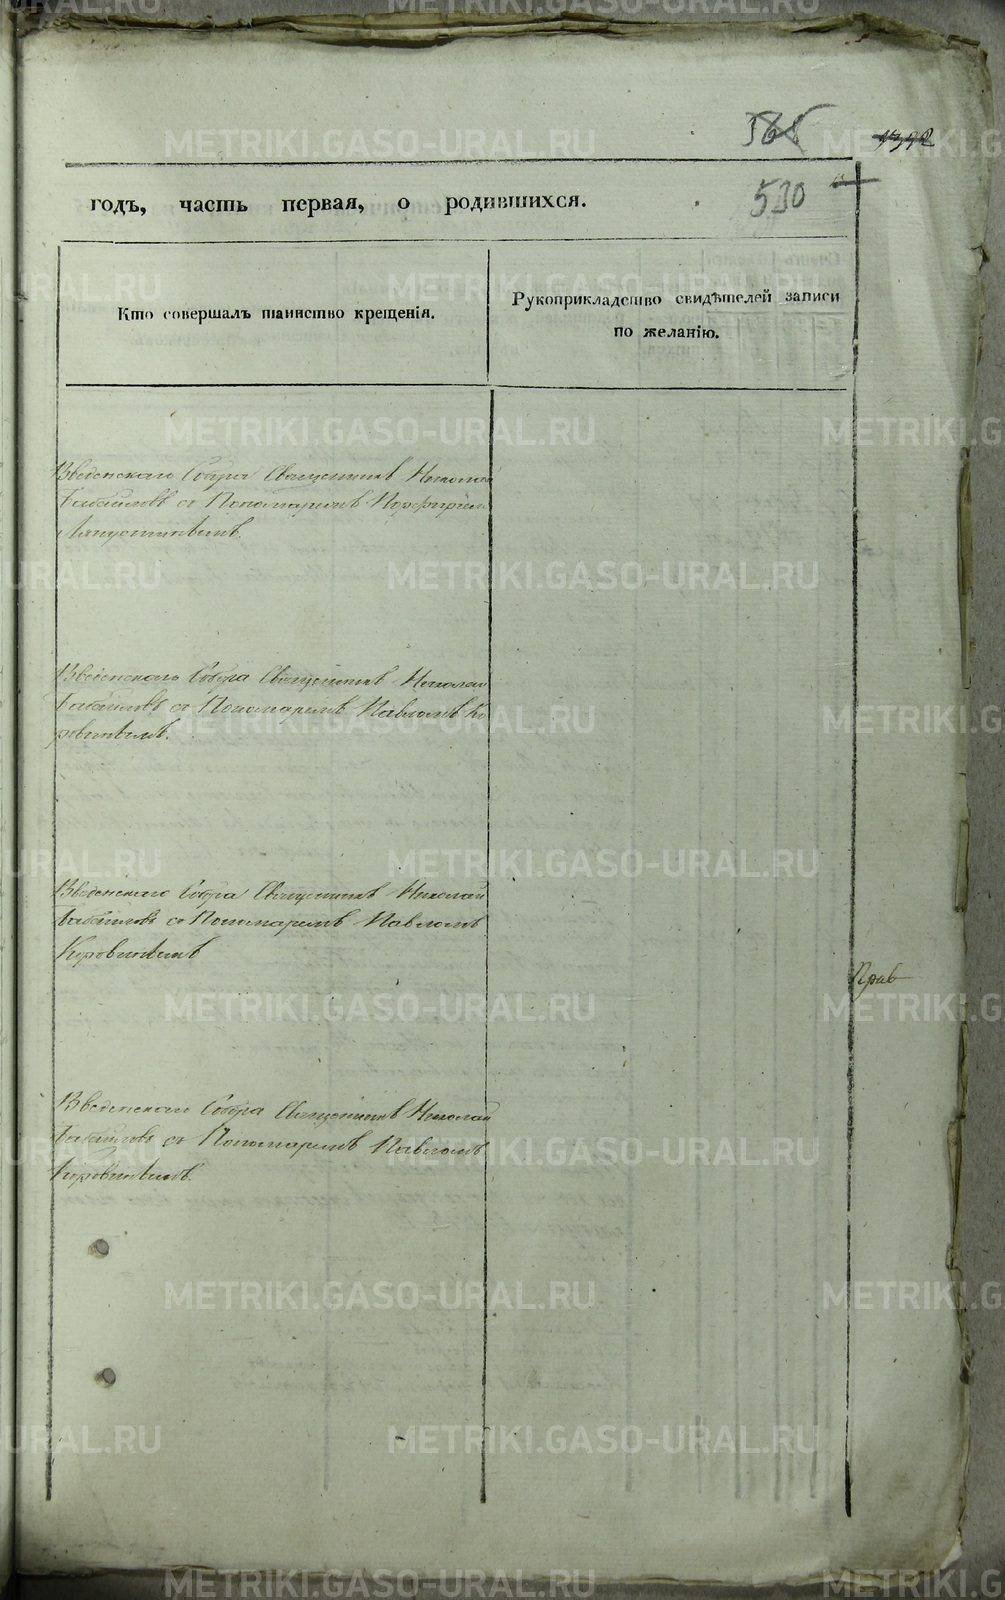 568
1392
530
годъ, часть первая, о родившихся.
Кто совершалъ таинство крещенія.
Рукоприкладство свидѣтелей записи
по желанію.
Введенскаго Собора Священникъ Николай
съ Пономаремъ Порфиріемъ
Введенскаго Собора Священникъ Николай
съ Пономаремъ Павломъ Ко
ровинымъ.
Введенскаго Собора Священникъ Николай
съ Пономаремъ Павломъ
Коровинымъ
Прав
Введенскаго Собора Священникъ Николай
съ Пономаремъ Павломъ
Коровинымъ.
METRIKI.GASO-URAL.RU